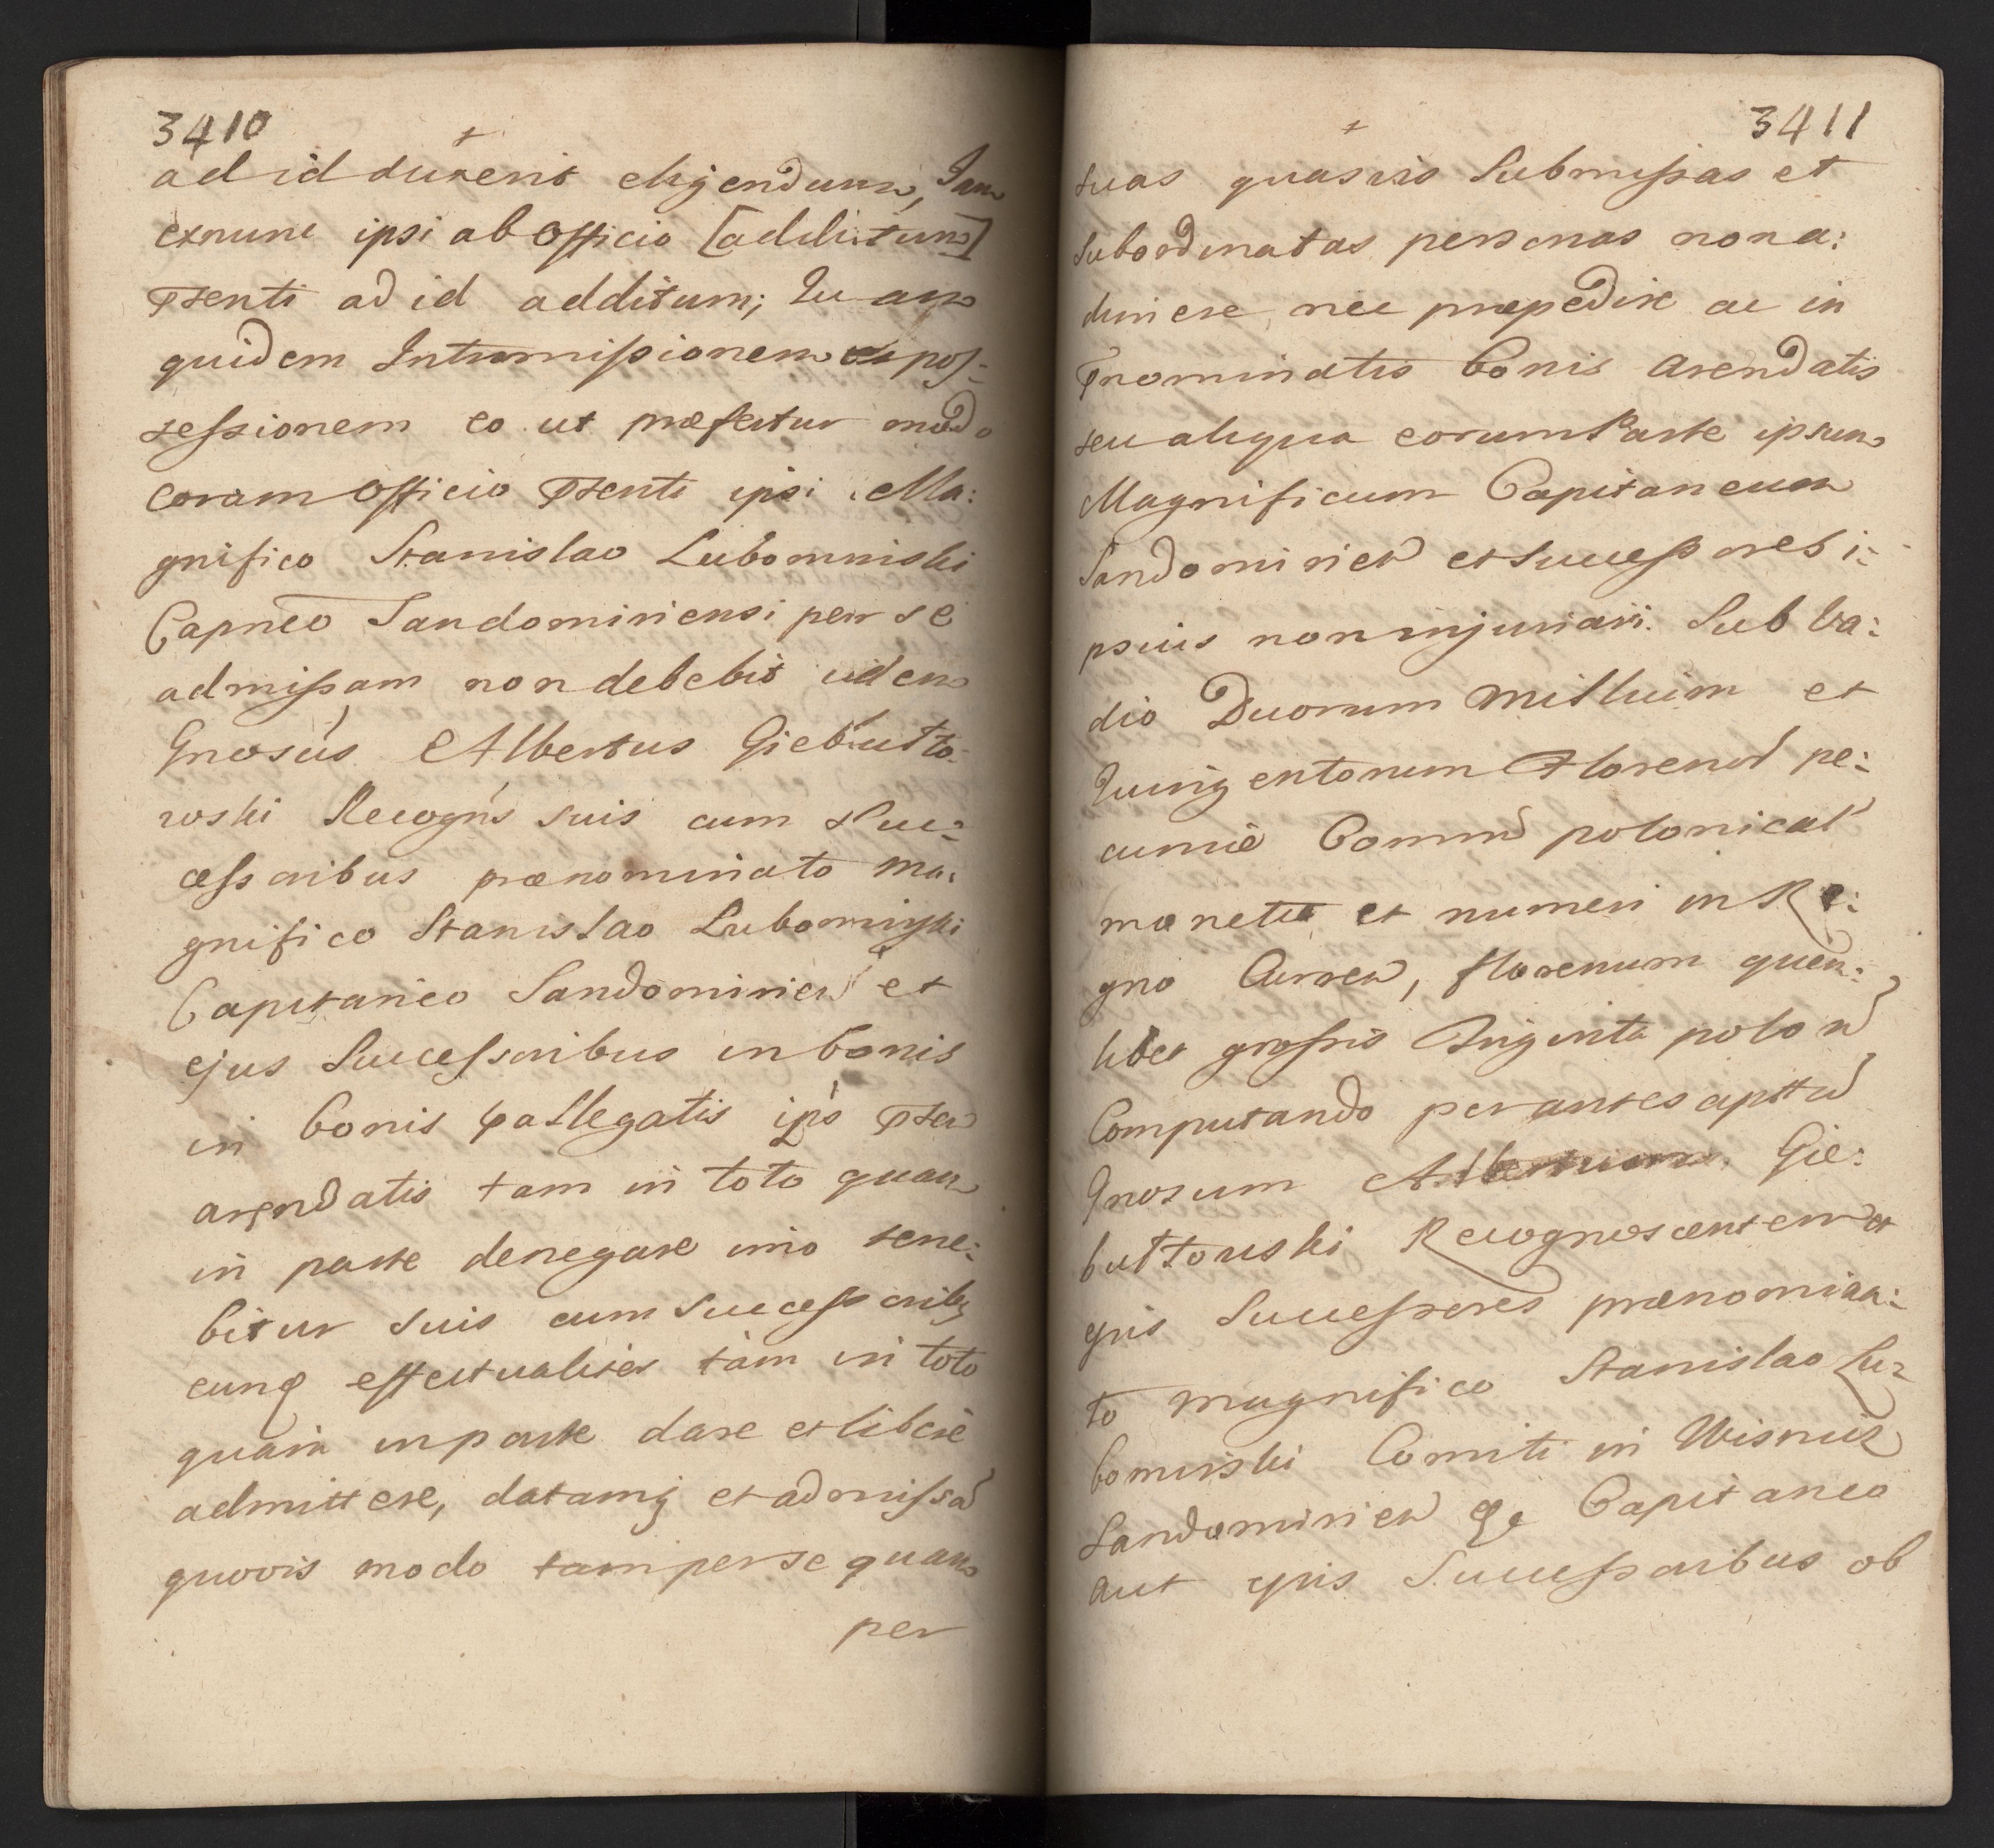 3410
+
ad id duxerit eligendum, Jam
exnunc ipsi ab Officio [additum]
Pñsenti ad id additum; Quam
quidem Intromissionem pos:
sessionem eo ut præfertur modo
coram Officio Pñsenti ipsi Ma:
gnifico Stanislao Lubomirski
Capneo Sandomiriensi per se
admissam non debebit idem
Gnosus Albertus Giebułto-
wski Recogñs suis cum Suc=
cessoribus prænominato Ma:
gnifico Stanislao Lubomirski
Capitaneo Sandomirien et
ejus Successoribus in bonis
in bonis pallegatis ipś Pñter
arendatis tam in toto quam
in parte denegare imo tene:
bitur suis cum Successoribq
eunq effectualiter tam in toto
quam in parte dare et liberè
admittere, datamq et admissã
quovis modo tam per se quam
per
3411
+
suas quasvis Submissas et
Subordinatas personas non a:
dimere, nec præpedire ac in
Pnominatis bonis arendatis
seu aliqua eorum Parte ipsum
Magnificum Capitaneum
Sandomirien et Successores i:
psius non injuriari. Sub Va:
dio Duorum Millium et
Quingentorum Florenõ pe:
cuniæ Commũ polonical
monetæ et numeri in Re:
gno Curren, florenum quem:
libet grossis Triginta polon
Computando per antescpttũ
Gnosum Albertum Gie:
bułtowski Recognoscentem et
ejus Successores prænomina:
to Magnifico Stanislao Lu=
bomirski Comiti in Wisnicz
Sandomirien qe Capitaneo
aut ejus Successoribus ob